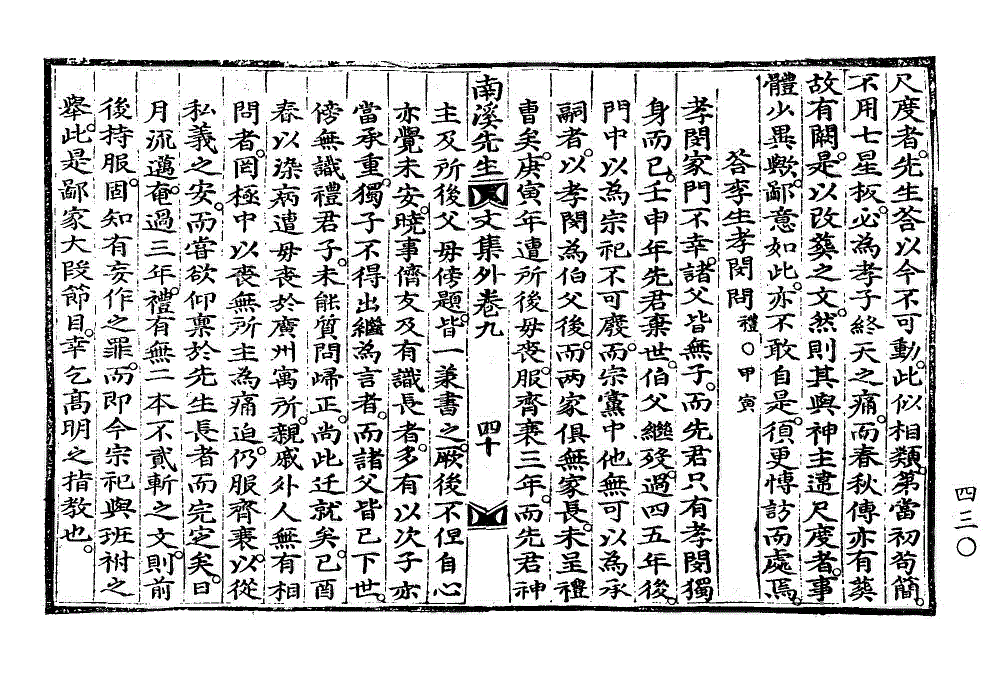 尺度者。先生答以今不可動。此似相類。第當初苟簡。
不用七星板。必爲孝子終天之痛。而春秋傳亦有葬
故有闕。是以改葬之文。然則其與神主違尺度者。事
體少異歟。鄙意如此。亦不敢自是。須更博訪而處焉。
答李生孝閔問 禮○甲寅
孝閔家門不幸。諸父皆無子。而先君只有孝閔獨
身而已。壬申年先君棄世。伯父繼歿。過四五年後。
門中以為宗祀不可廢。而宗黨中他無可以為承
嗣者。以孝閔為伯父後。而两家俱無家長。未呈禮
曹矣。庚寅年遭所後母喪。服齊衰三年。而先君神
南溪先生文集外卷九 四十
主及所後父母傍題。皆一兼書之。厥後不但自心
亦覺未安。曉事儕友及有識長者。多有以次子亦
當承重。獨子不得出繼為言者。而諸父皆已下世。
傍無識禮君子。未能質問歸正。尚此迁就矣。己酉
春以染病遭母喪於廣州寓所。親戚外人無有相
問者。罔極中以喪無所主為痛迫。仍服齊衰。以從
私義之安。而嘗欲仰稟於先生長者而完定矣。日
月流邁。奄過三年。禮有無二本不貳斬之文。則前
後持服。固知有妄作之罪。而即今宗祀與班祔之
舉。此是鄙家大段節目。幸乞高明之指教也。
四三〇